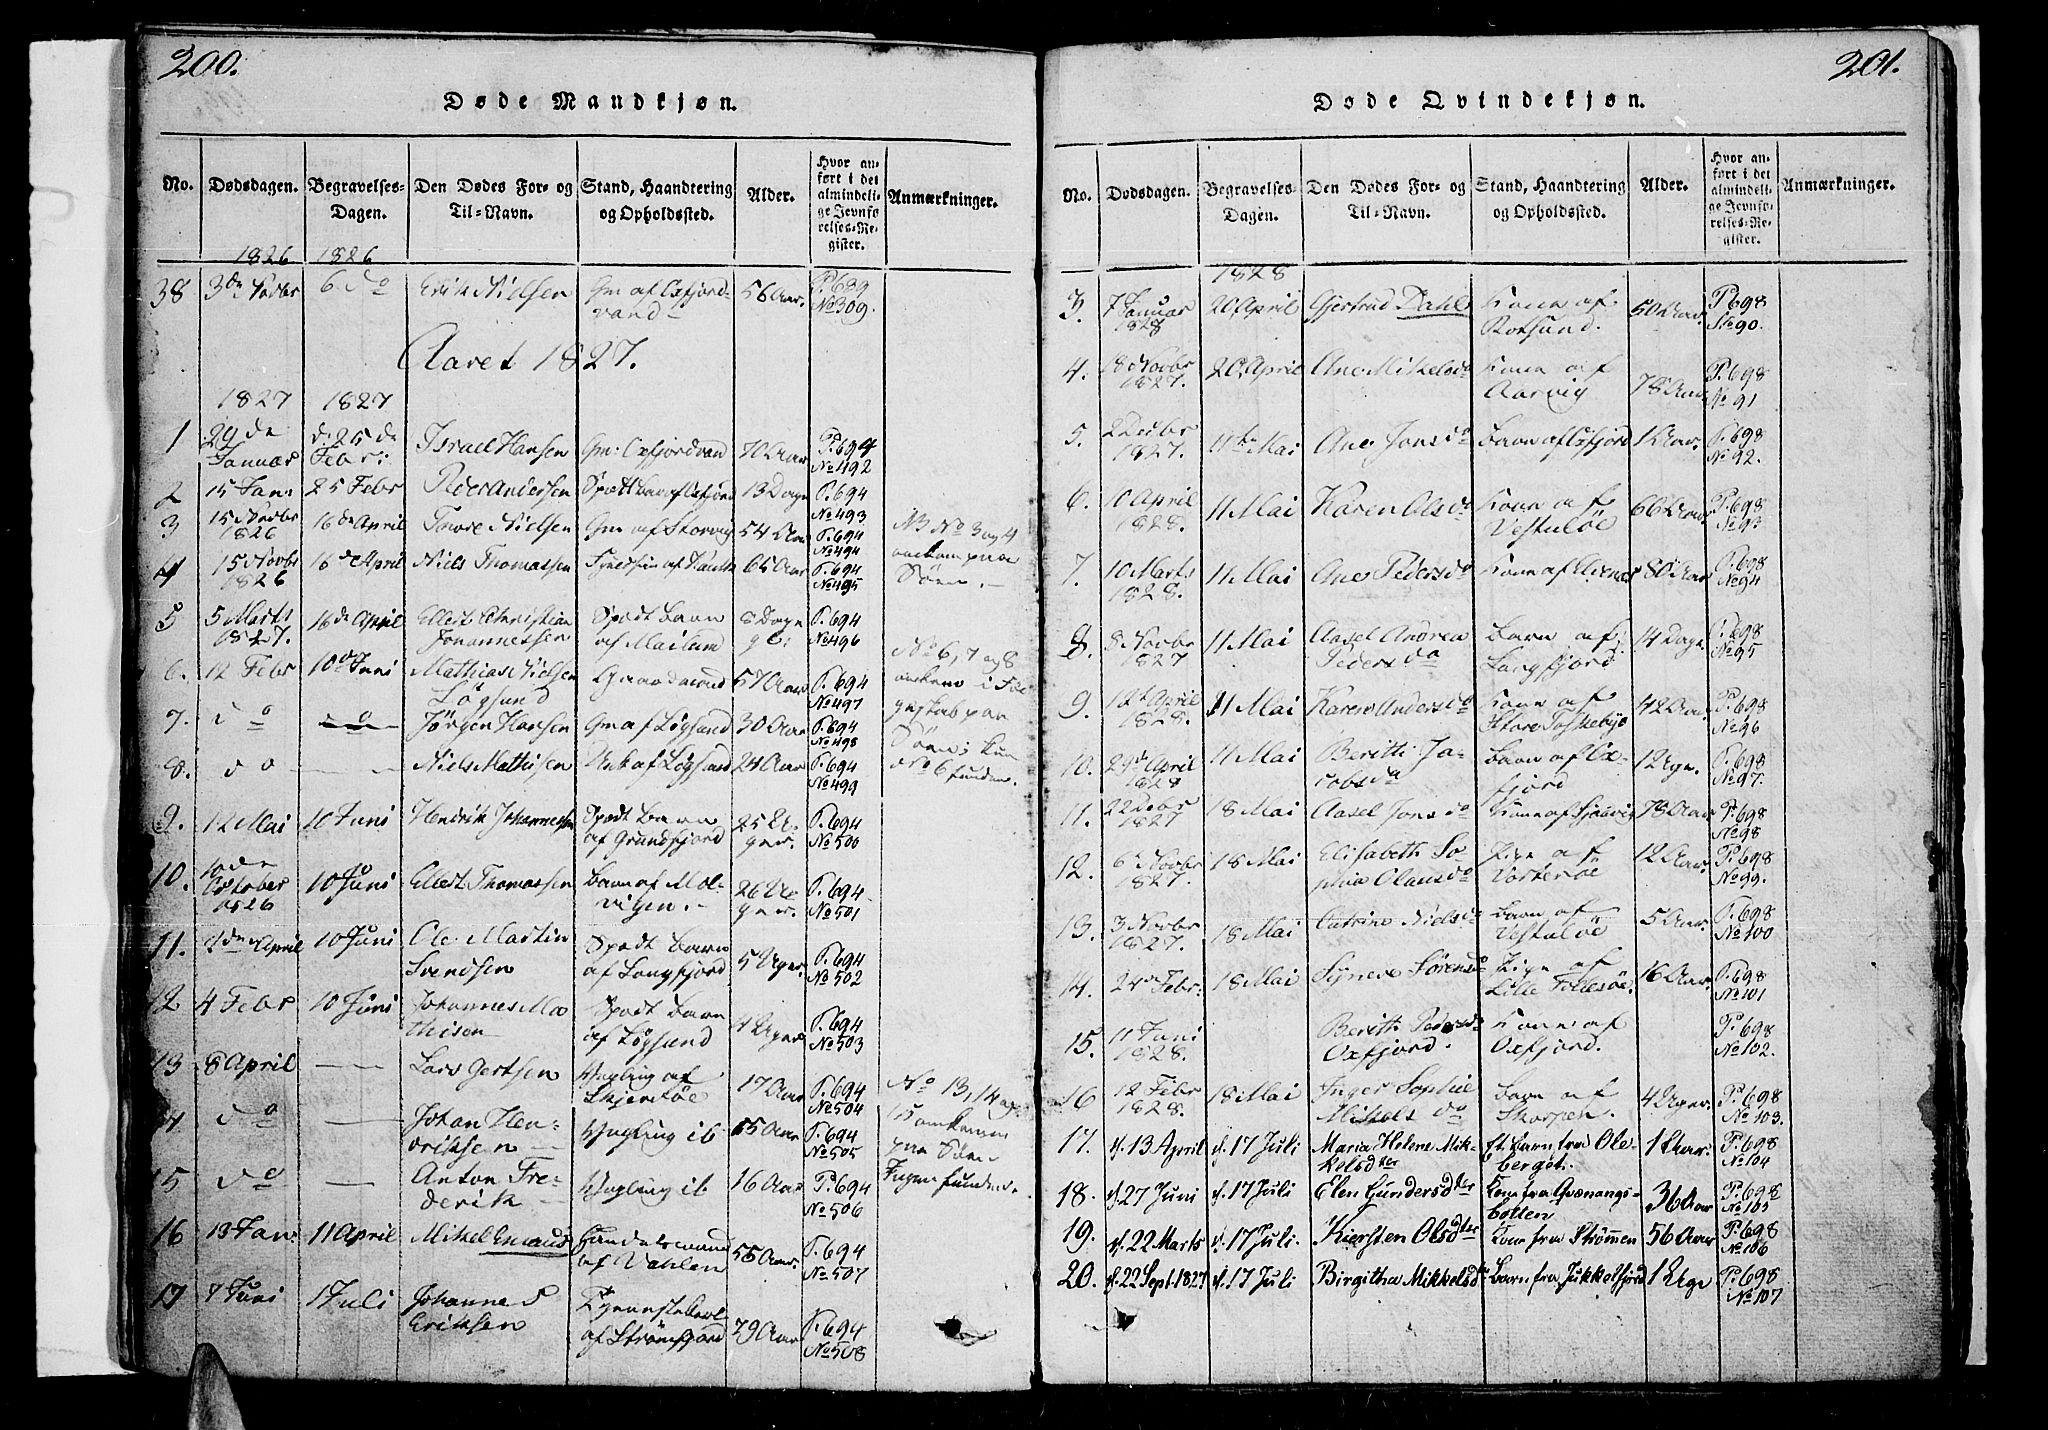 200.
Døde Mandkjøn.
No. Dødsdagen. Begravelses-Dagen. Den Dødes For- og Til-Navn. Stand, Haandtering og Opholdssted. Alder. Hvor anført i det almindelige Jevnførelses-Register. Anmærkninger.
1826 1826
38 3de Novbr 6 do Erik Nielsen Gm af Oxfjordvand 56 Aar. P. 689 No 309.
Aaret 1827.
1827 1827
1 29de Januar d: 25de Febr: Israel Hansen Gm: Oxfjordvand 70 Aar P. 694 No 492
2 15 Jan: 25 Febr Peder Andersen Spædt barn af Oxfjord 13 Dage P. 694 No 493
3 15 Novbr 1826 16de April Tore Nielsen Gm af Storvig 54 Aar P. 694 No 494
NB No 3 og 4 omkom paa Søen.
4 15 Novbr 1826 16de April Niels Thomassen 65 Aar P. 694 No 495
5 5 Marts 1827. 16de April Ellert Christian Johannessen Spædt Barn af Mailund 8 Dage P. 694 No 496
6. 12 Febr 10de Juni Mathias Nielsen Løgsund Gaardmand 57 Aar P. 694 No 497
No 6, 7 og 8 omkom i Følgeskab paa Søen; kun No 6 funden.
7. do do Jørgen Hansen Gm af Løgsund 30 Aar P. 694 No 498
8. do — Niels Mathisen Unk af Løgsund 24 Aar P. 694 No 499
9. 12 Mai 10 Juni Hendrik Johannessen Spædt Barn af Grundfjord 25 Uger. P. 694 No 500
10. 10de October 1826 10 Juni Ellert Thomassen Barn af Molvigen. 26 Uger. P. 694 No 501
11. 1de April 10 Juni Ole Martin Svendsen Spædt Barn af Langfjord 5 Uger. P. 694 No 502
12 4 Febr 10 Juni Johannes Mathisen Spædt Barn af Løgsund 4 Uger P. 694 No 503
13 8 April — Lars Jertsen Yngling af Skjertøe 17 Aar P. 694 No 504
No 13, 14 og 15 omkomen paa Søen Ingen funden.
14 do — Johan Hendriksen Yngling ib 15 Aar P. 694 No 505
15 do — Anton Frederik Yngling ib 16 Aar P. 694 No 506
16 13 Jan. 11 April Mikel Emaus Handelsmand af Vahlen 55 Aar. P. 694 No 507
17 7 Juni 1 Juli Johannes Eriksen af Strømfjord 79 Aar P. 694 No 508
201.
Døde Qvindekjøn.
No. Dødsdagen. Begravelses-Dagen. Den Dødes For- og Til-Navn. Stand, Haandtering og Opholdssted. Alder. Hvor anført i det almindelige Jevnførelses-Register. Anmærkninger.
1828
3. 7 Januar 1828 20 April Gjertrud Dahl Kone af Rotsund. 50 Aar. P. 698 No 90.
4. 18 Novbr 1827. 20 April Ane Mikelsda Kone af Aarvig 78 Aar P. 698 No 91
5. 2 Decbr 1827. 11te Mai Ane Jonsda Barn af Oxfjord 1 Aar. P. 698 No 92.
6. 10 April 1828. 11 Mai Karen Olsda Kone af Vestuløe 66 Aar P. 698 No 93
7. 10 Marts 1828. 11 Mai Ane Pedersda Kone af 80 Aar P. 698 No 94
8. 8 Novbr 1827 11 Mai Aasel Andrea Pedersda Barn af Langfjord 14 Dage P. 698 No 95
9. 12te April 1828. 11 Mai Karen Andersda Kone af Store Taskebye 42 Aar. P. 698 No 96
10. 29de April 1828 11 Mai Beritti Jacobsda Barn af Oxfjord 12 Uger. P. 698 No 97.
11. 22 Decbr 1827 18 Mai Aasel Jonsda Kone af 78 Aar P. 698 No 98
12. 6te Novbr 1827. 18 Mai Elisabeth Sophia Olausda Pige af Vorterøe 12 Aar. P. 698 No 99.
13. 3 Novbr 1827. 18 Mai Catrine Nielsda Barn af Vestuløe 5 Aar. P. 698 No 100
14. 24de Febr. 18 Mai Syneve Sørensda Pige af Lille Follesøe. 16 Aar. P. 698 No 101
15. 11 Juni 1828. Berith Pedersda Oxfjord. Kone af Oxfjord. P. 698 No 102.
16 12 Febr 1828. 18 Mai Inger Sophie Mikelsda Barn af Skorpen. 4 Uger. P. 698 No 103.
17. d. 13 April d. 17 Juli Maria Helene Mikkelsdtter Et Barn fra Oleberget. 1 Aar. P. 698 No 104
18. d. 27 Juni d. 17 Juli Elen Gundersdtter Kone fra Qvænangsbotten 36 Aar P. 698 No 105
19. d. 22 Marts d. 17 Juli. Kiersten Olsdtter Kone fra Strømmen 56 Aar P. 698 No 106
20. d. 22 Sept. 1827 d. 17 Juli Birgitha Mikkelsdtr Barn fra Jukkelfjord 1 Uge P. 698 No 107